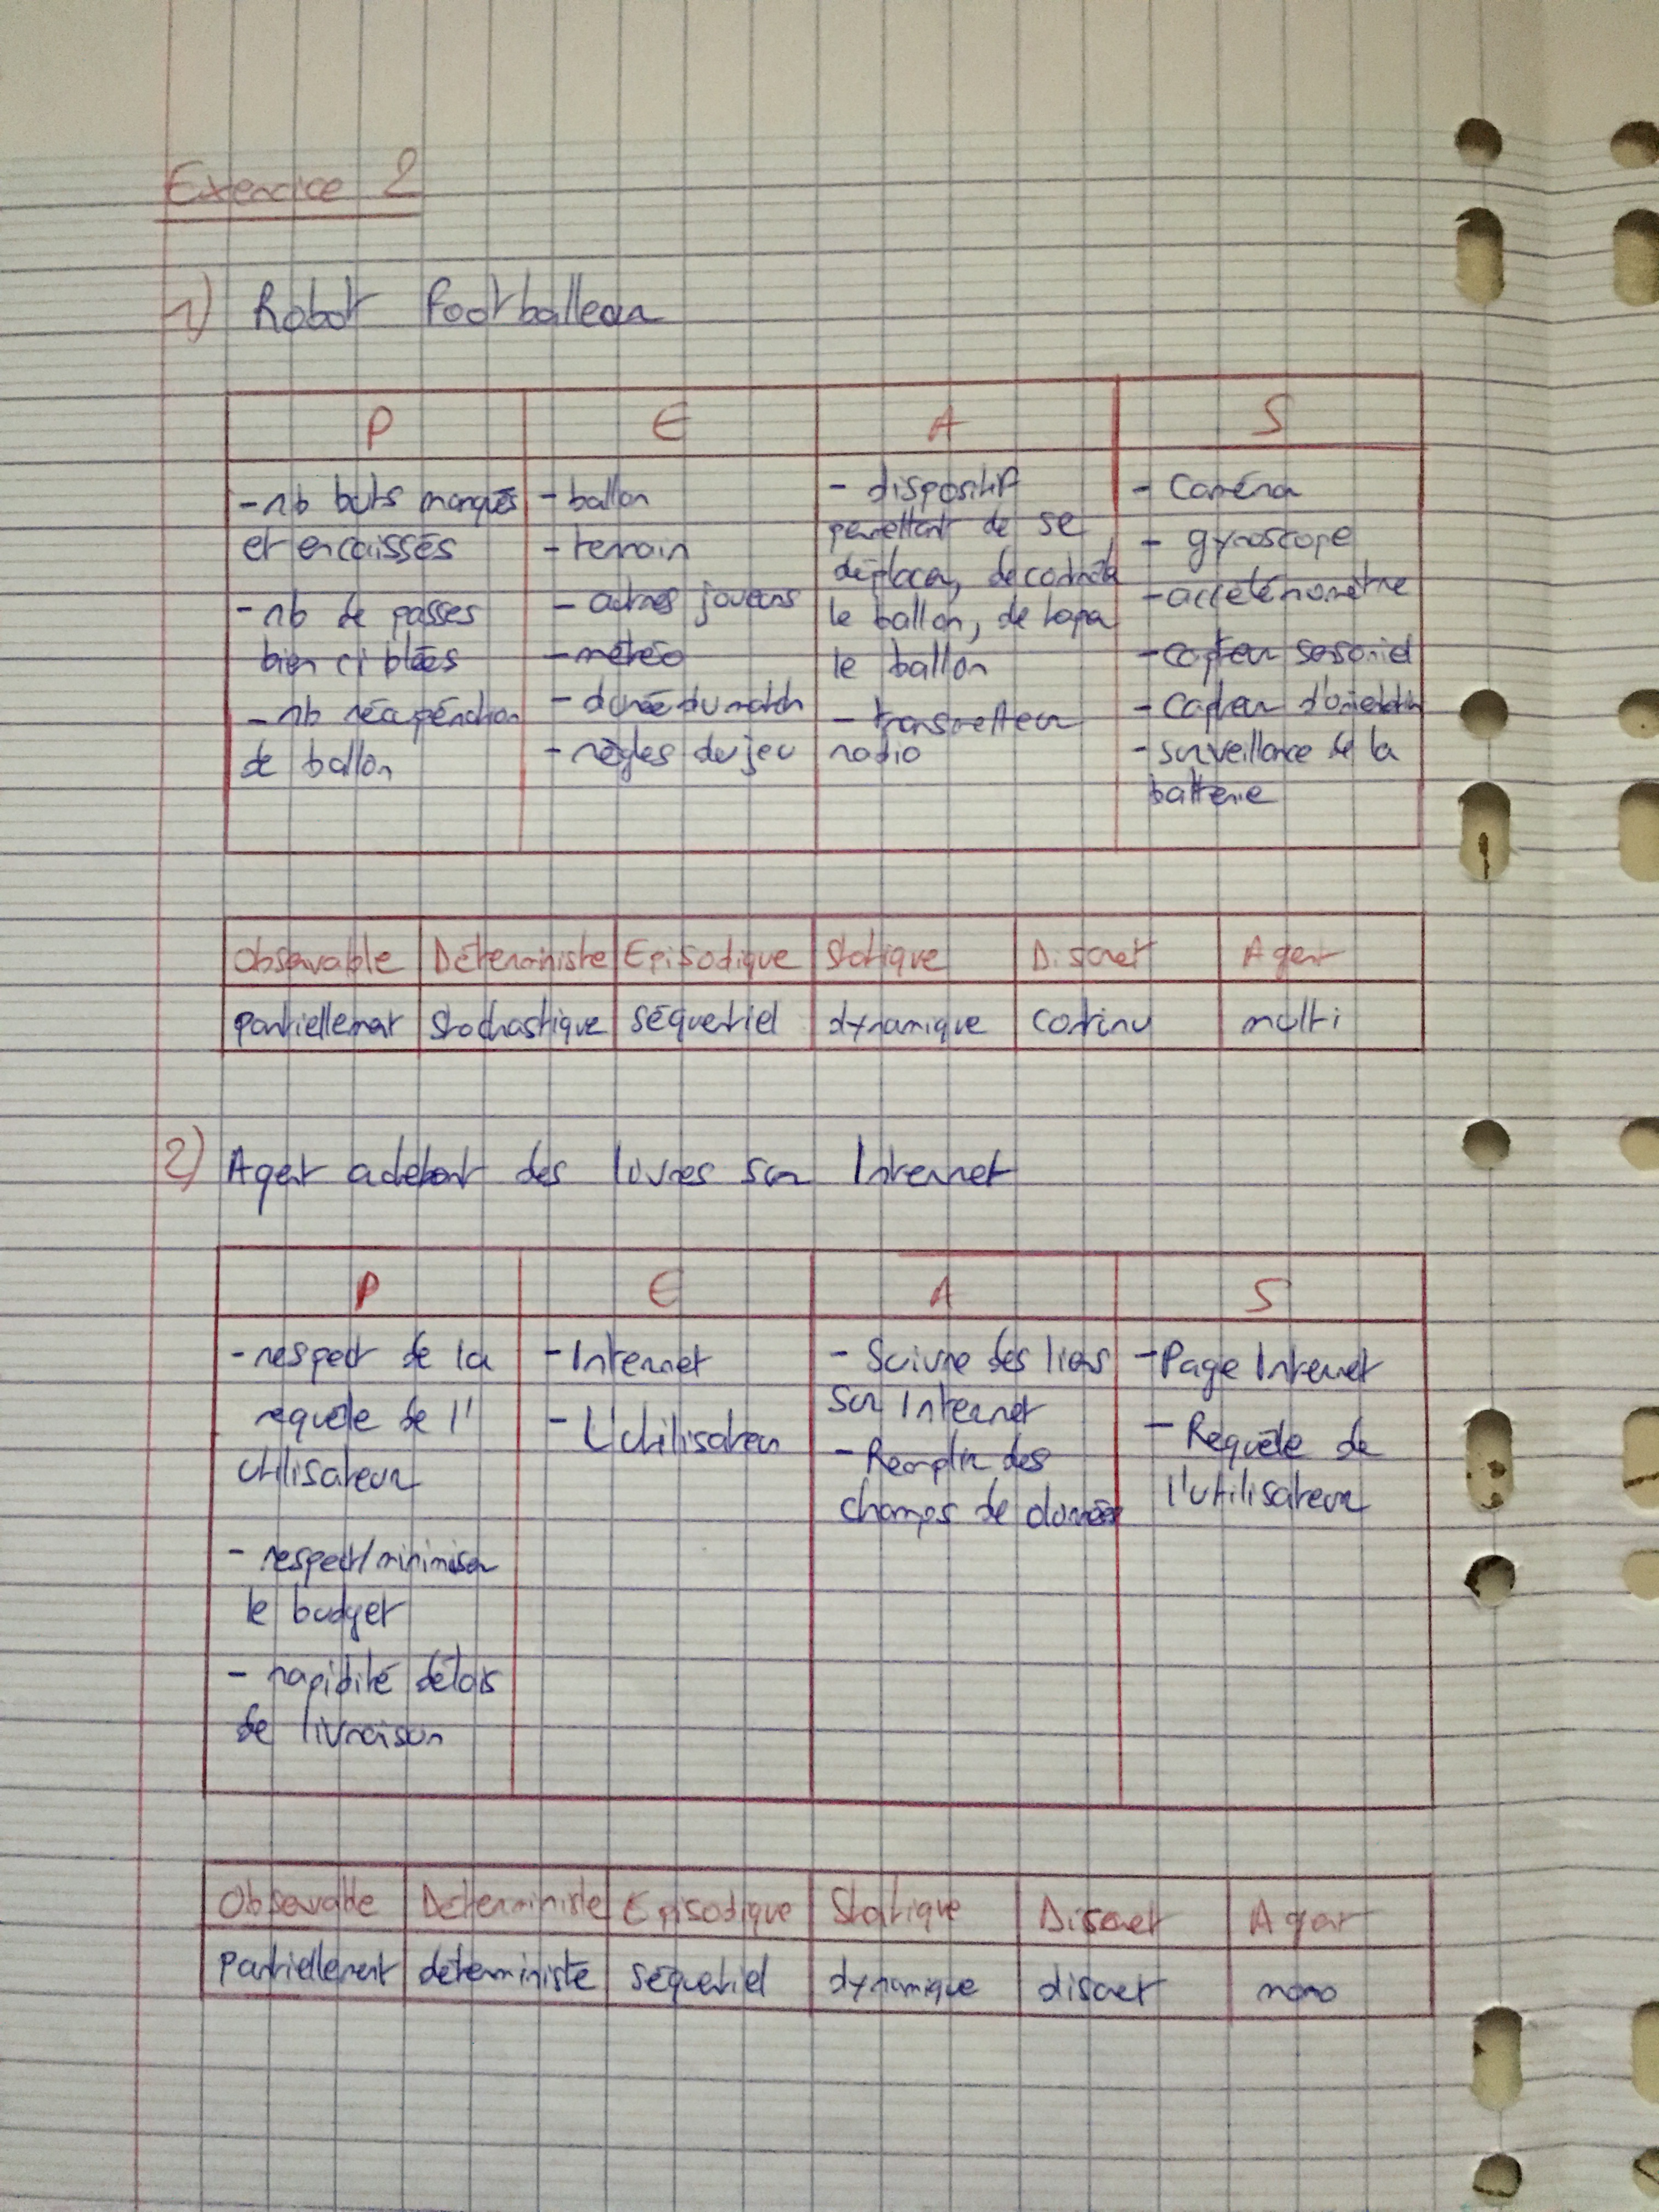 Exercice 2
1) Robot footballeur
P
E
A
S
- nb buts marqués
et encaissés
- nb de passes
bien ciblées
- nb récupération
de ballon
- ballon
- terrain
- autres joueurs
- météo
- durée du match
- règles du jeu
- dispositif
permettant de se
déplacer, de contrôler
le ballon, de taper
le ballon
- transmetteur
radio
- Caméra
- gyroscope
- accéléromètre
- capteur
- Capteur d'orientation
- surveillance de la
batterie
Observable Déterministe Episodique Statique Discret Agent
partiellement stochastique séquentiel dynamique continu multi
2) Agent achetant des livres sur Internet
P
E
A
S
- respect de la
requête de l'
utilisateur
- respect/minimiser
le budget
- rapidité délais
de livraison
- Internet
- L'utilisateur
- Suivre des liens
sur Internet
- Remplir des
champs de données
- Page Internet
- Requête de
l'utilisateur
Observable Déterministe Episodique Statique Discret Agent
Partiellement déterministe séquentiel dynamique discret mono